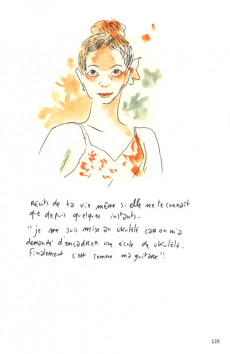 Récits de ta vie même si elle ne te connait
que depuis quelques instants.
"je me suis mise au ukulélé car on m'a
demandé d'encadrer une école de ukulélé.
Finalement c'est comme ma guitare"!